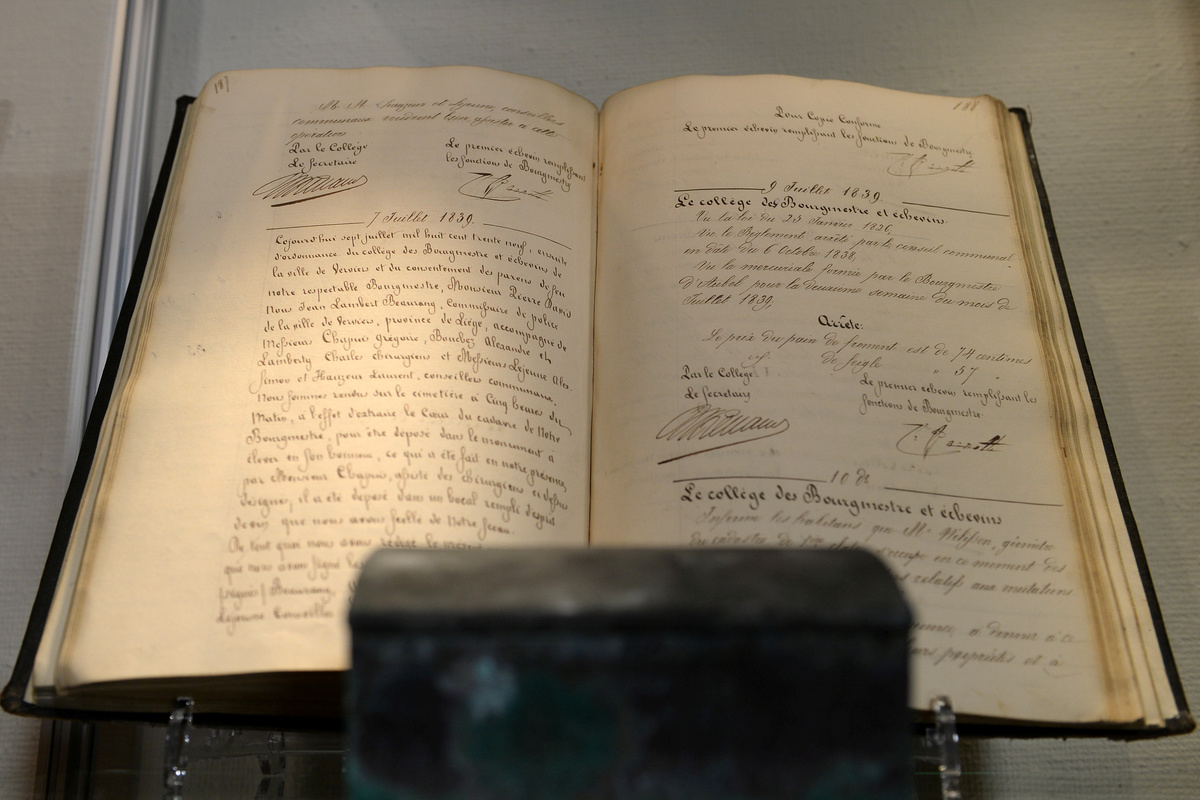 187
M. M. et Lejeune, conseillers
communaux à cette
opération
Par le Collége
Le Secretaire
Le premier échevin remplissant
les fonctions de Bourgmestre
7 Juillet 1839.
Cejourd'hui sept juillet mil huit cent trente neuf, ensuite
d'ordonnance du collége des Bourgmestre et échevins de
la ville de Verviers et du consentement des parens de feu
notre respectable Bourgmestre, Monsieur Pierre David
Nous Jean Lambert Beaurang, commissaire de police
de la ville de Verviers, province de Liége, accompagné de
Messieurs Chapuis Grégoire, Bouchez Alexandre et
Lamberty Charles chirurgiens et Messieurs Lejeune Alex.
Simon et Hauzeur Laurent, conseillers communaux,
Nous sommes rendus sur le cimetière à Cinq heures du
Matin, à l'effet d'extraire le Cœur du cadavre de Notre
Bourgmestre, pour être déposé dans le monument à
élever en son honneur, ce qui a été fait en notre présence,
par Monsieur Chapuis, assisté des chirurgiens ci dessus
designés, il a été déposé dans un bocal remplé d'esprit
de vin que nous avons scellé de Notre sceau.
De tout quoi nous avons rédigé le
que nous avons signé
signés / Beaurang,
Lejeune Conseiller
188
Pour Copie Conforme
Le premier échevin remplissant les fonctions de Bourgmestre
9 Juillet 1839
Le collége des Bourgmestre et échevins
Vu la loi du 25 Janvier 1826,
Vu le Réglement arrêté par le conseil communal
en date du 6 Octobre 1838,
Vu la mercuriale formée par le Bourgmestre
d'Aubel pour la deuxieme semaine du mois de
Juillet 1839,
Arrête:
Le prix du pain de froment est de 74 centimes
de seigle " 57 "
Par le Collége
Le Secretaire
Le premier échevin remplissant les
fonctions de Bourgmestre
10 do
Le collége des Bourgmestre et échevins
Informe les habitans que Mr géomètre
du cadastre de s'occupe en ce moment des
relatifs aux mutations
à donner à ce
propriétés et à